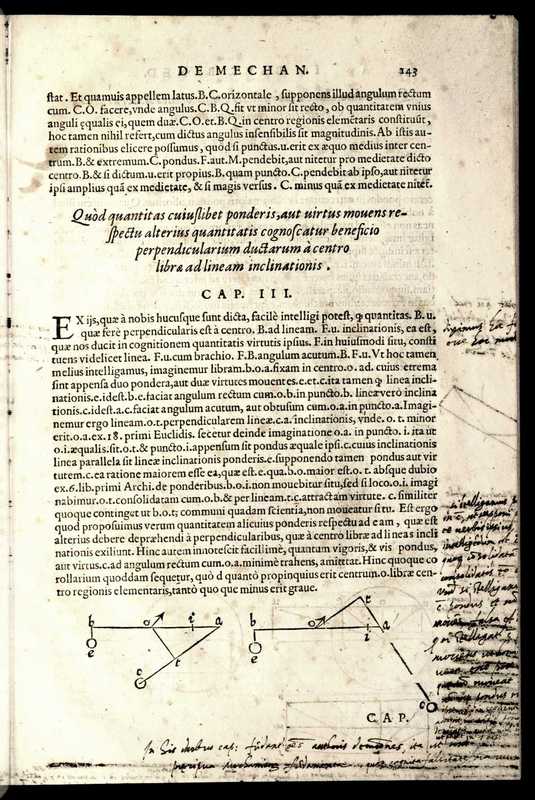 DE MECHAN. 143
stat. Et quamuis appellem latus.B.C.orizontale, supponens illud angulum rectum
cum. C.O. facere, vnde angulus.C.B.Q. sit vt minor sit recto, ob quantitatem vnius
anguli ęqualis ei, quem duæ.C.O.et.B.Q.in centro regionis elemẽtaris constituũt,
hoc tamen nihil refert, cum dictus angulus insensibilis sit magnitudinis. Ab istis au-
tem rationibus elicere possumus, quòd si punctus.u.erit ex æquo medius inter cen-
trum.B.& extremum.C.pondus.F.aut.M.pendebit, aut nitetur pro medietate dicto
centro.B.& si dictum.u.erit propius.B.quam puncto.C.pendebit ab ipso, aut nitetur
ipsi amplius quã ex medietate, & si magis versus. C. minus quã ex medietate nitet̃.
Quòd quantitas cuiuslibet ponderis, aut virtus mouens re-
spectu alterius quantitatis cognoscatur beneficio
perpendicularium ductarum à centro
libræ ad lineam inclinationis.
CAP. III.
EX ijs, quæ à nobis hucusque sunt dicta, facilè intelligi potest, ꝙ quantitas. B. u.
quæ ferè perpendicularis est à centro. B.ad lineam. F.u. inclinationis, ea est,
quæ nos ducit in cognitionem quantitatis virtutis ipsius. F.in huiusmodi situ, consti
tuens videlicet linea. F.u.cum brachio. F.B.angulum acutum.B.F.u. Vt hoc tamen
melius intelligamus, imaginemur libram.b.o.a.fixam in centro.o. ad. cuius extrema
sint appensa duo pondera, aut duæ virtutes mouentes.e.et.c.ita tamen ꝙ linea incli-
nationis.e.idest.b.e.faciat angulum rectum cum.o.b.in puncto.b. linea verò inclina
tionis.c.idest.a.c.faciat angulum acutum, aut obtusum cum.o.a.in puncto.a.Imagi-
nemur ergo lineam.o.t.perpendicularem lineæ.c.a.inclinationis, vnde. o. t. minor
erit.o.a.ex.18. primi Euclidis. secetur deinde imaginatione o.a. in puncto. i. ita ut
o.i.æqualis.sit.o.t.& puncto.i.appensum sit pondus æquale ipsi.c.cuius inclinationis
linea parallela sit lineæ inclinationis ponderis.e.supponendo tamen pondus aut vir
tutem.c.ea ratione maiorem esse ea, quæ est.e.qua.b.o.maior est.o.t. absque dubio
ex.6.lib.primi Archi.de ponderibus.b.o.i.non mouebitur situ, sed si loco.o.i. imagi
nabimur.o.t.consolidatam cum.o.b.& per lineam.t.c.attractam virtute. c. similiter
quoque continget ut b.o.t; communi quadam scientia, non moueatur situ. Est ergo
quod proposuimus verum quantitatem alicuius ponderis respectu ad eam, quæ est
alterius debere depræhendi à perpendicularibus, quæ à centro libræ ad lineas incli
nationis exiliunt. Hinc autem innotescit facillimè, quantum vigoris, & vis pondus,
aut virtus.c.ad angulum rectum cum.o.a.minimè trahens, amittat. Hinc quoque co
rollarium quoddam sequetur, quòd quantò propinquius erit centrum.o.libræ cen-
tro regionis elementaris, tantò quo que minus erit graue.
b o i a
e
t
c
b o i a
e
t
c
CAP.